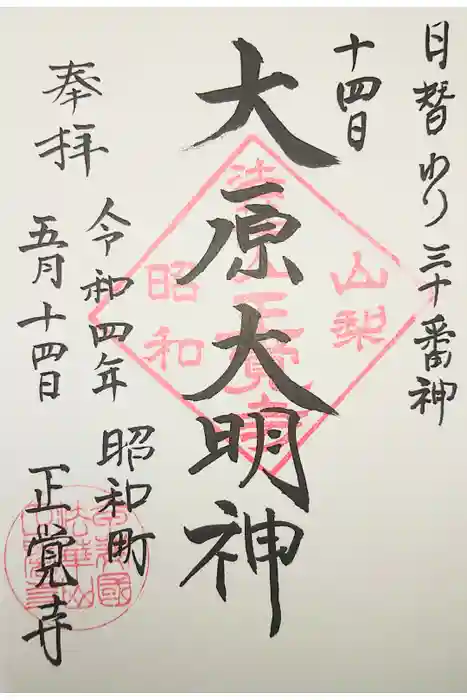 日替わり三十番神
十四日
大原大明神
奉拝
令和四年
五月十四日
昭和町
正覚寺
山梨
昭和
正覚寺